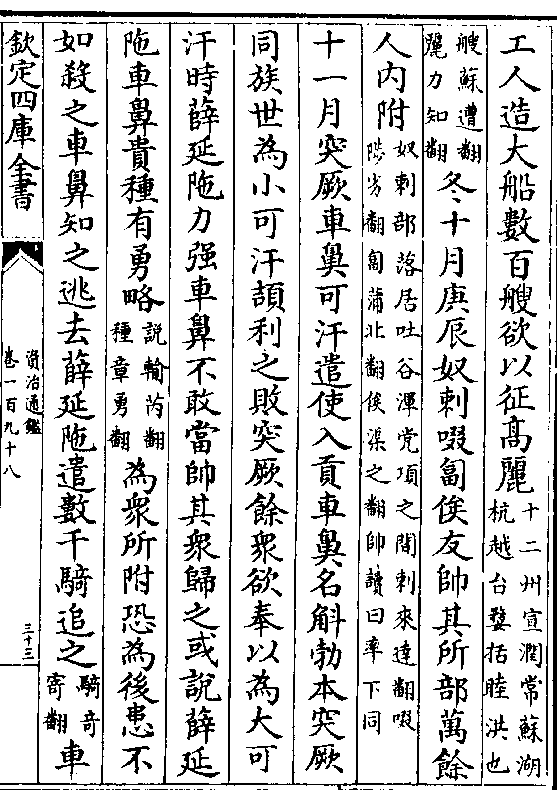 工人造大船數百艘欲以征髙麗十二州宣潤常蘇湖杭越台婺括睦洪也
艘蘇遭翻麗力知翻冬十月庚辰奴刺啜匐俟友帥其所部萬餘
人内附奴刺部落居吐谷渾党項之間刺來達翻啜陟劣翻匐蒲北翻俟渠之翻帥讀曰率下同
十一月突厥車鼻可汗遣使入貢車鼻名斛勃本突厥
同族世為小可汗頡利之敗突厥餘衆欲奉以為大可
汗時薛延陁力强車鼻不敢當帥其衆歸之或說薛延
陁車鼻貴種有勇略說輸芮翻種章勇翻為衆所附恐為後患不
如殺之車鼻知之逃去薛延陁遣數千騎追之騎奇寄翻車
欽定四庫全書
資治通鑑
卷一百九十八
三十三